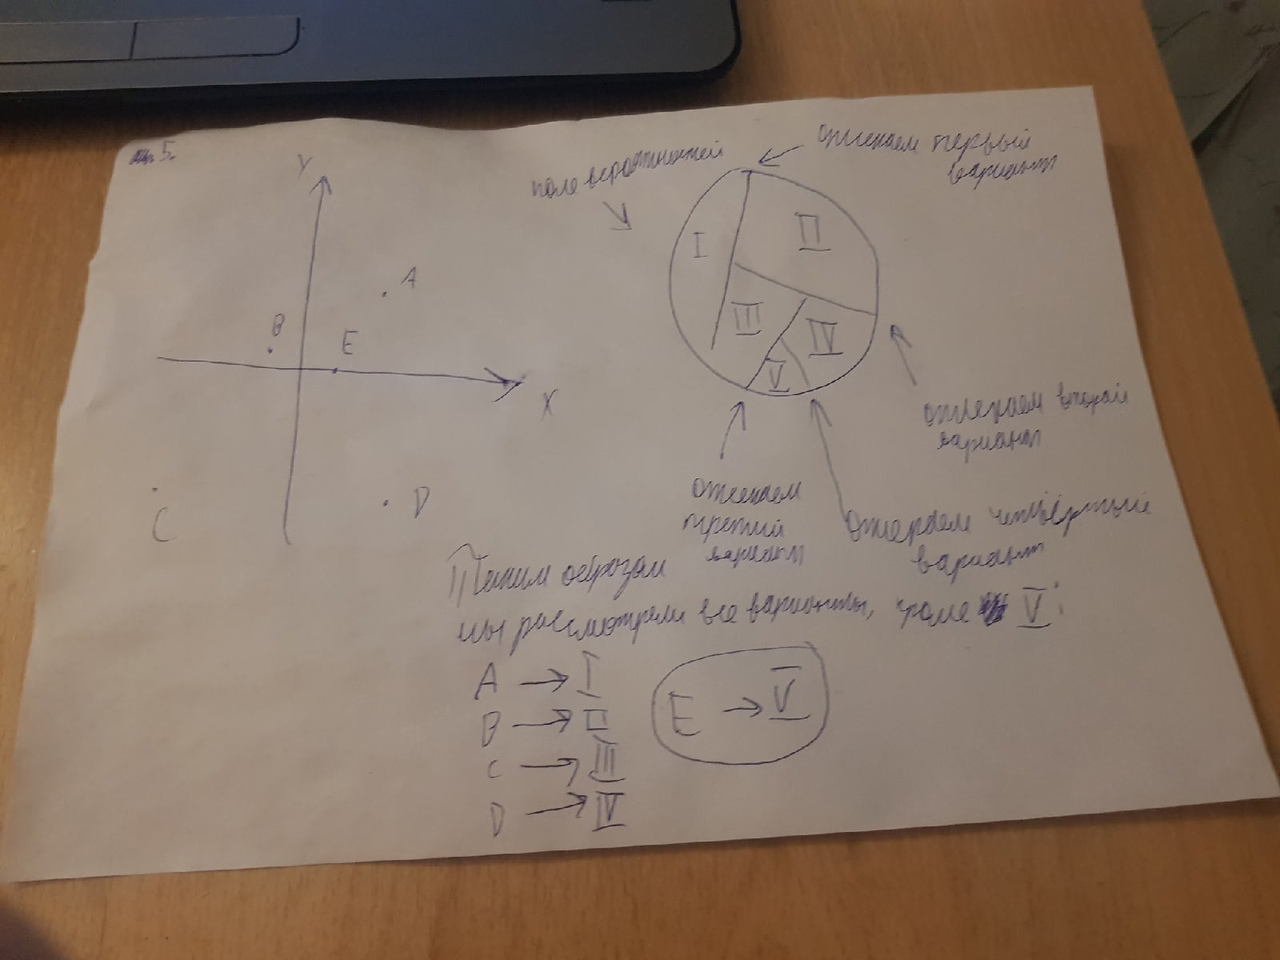 5.
Y
A
B
E
X
C
D
поле вероятностей
отсекаем первый
вариант
I
II
III
IV
V
отсекаем второй
вариант
отсекаем
третий
вариант
отсекаем четвёртый
вариант
Таким образом
мы рассмотрели все варианты, кроме V:
A → I
B → II
C → III
D → IV
E → V